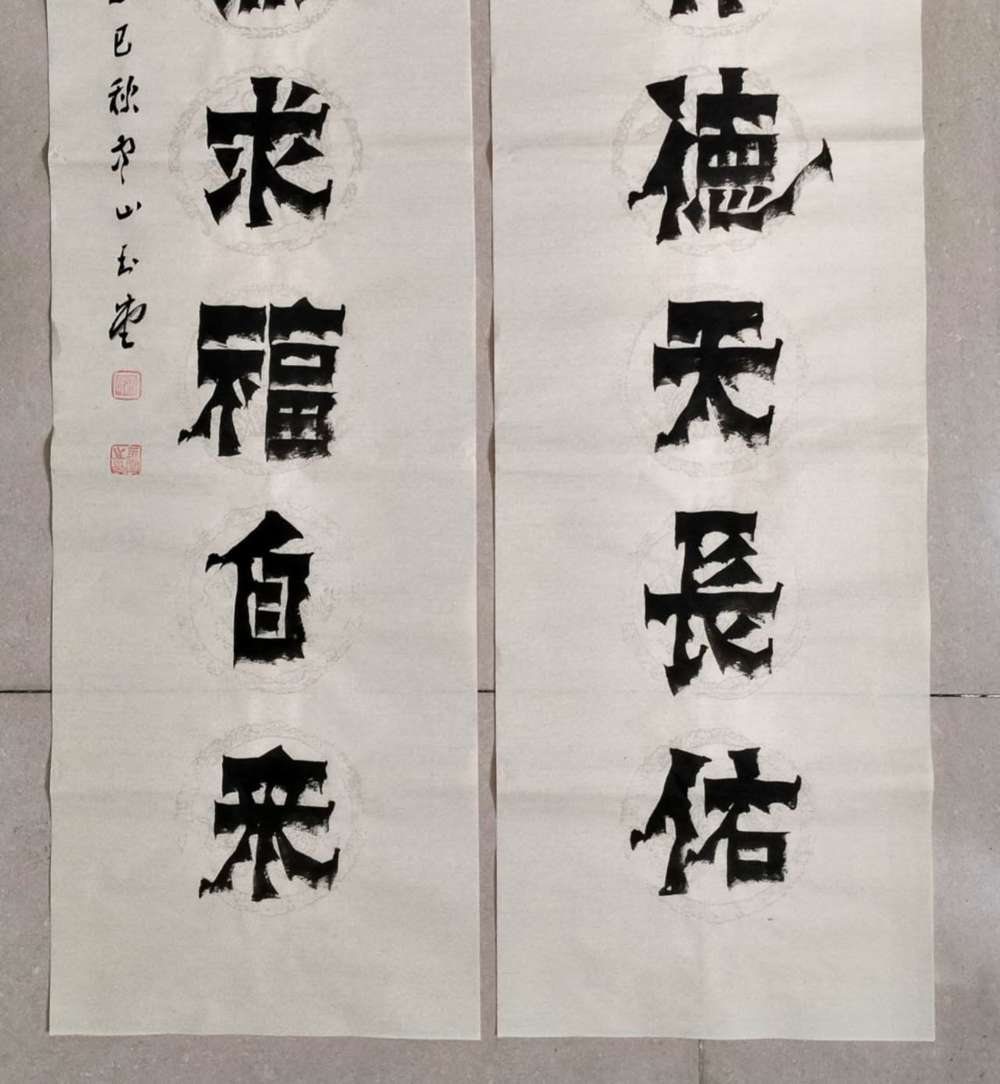 德天長佑
求福自来
巳秋
山玉堂